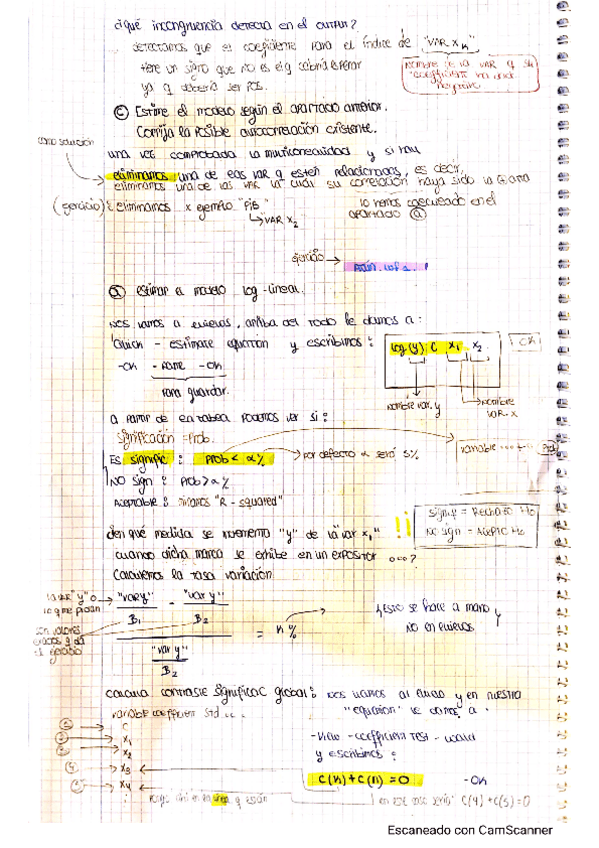 ¿Qué incongruencia detecta en el output?
detectamos que el coeficiente para el índice de "VAR XK"
tiene un signo que no es el q cabría esperar
ya q debería ser POS.
nombre de la VAR q su
"coefficient" ha sido
negativo
Ⓒ Estime el modelo según el apartado anterior.
Corrija la posible autocorrelación existente.
como solución
una vez comprobada la multicolinealidad y si hay
eliminamos una de las VAR q estén relacionadas, es decir,
eliminamos una de las VAR la cual su correlación haya sido la ⊕ alta
(ejercicio) : eliminamos x ejemplo "PIB"
→ VAR X2
lo hemos en el
apartado ⓐ
ejercicio →
estimar el modelo log-lineal.
Nos vamos a eviews, arriba del todo le damos a:
Quick - estimate equation y escribimos:
log(y) C X1 X2
- OK
-OK - name - OK
para guardar.
nombre var. y
nombre
VAR. X
a partir de en tabla podemos ver si:
significación = Prob.
Es signific : Prob < α% → por defecto α será 5%
variable
Prob
NO sign : Prob > α%
Aceptable : miramos "R-squared"
signif = Rechazo Ho
No sign = Acepto Ho
¿en qué medida se incrementa "y" de la "var x1"
cuando dicha marca se exhibe en un expositor ...?
Calculemos la tasa variación
la var "y" o
lo que pidan
"var y" - "var y"
B1 B2
= n %
"var y"
B2
son valores
y da
el ejercicio
¡Esto se hace a mano y
NO en eviews
calcula contraste significac global: nos vamos al eviews y en nuestra
"equation" le damos a:
variable coefficient Std ...
① → C
② → X1
③ → X2
④ → X3
⑤ → X4
-View - coefficient TEST - wald
y escribimos:
C(n)+C(n)=0
-OK
en la línea q están
en este caso sería: C(4)+C(5)=0
Escaneado con CamScanner